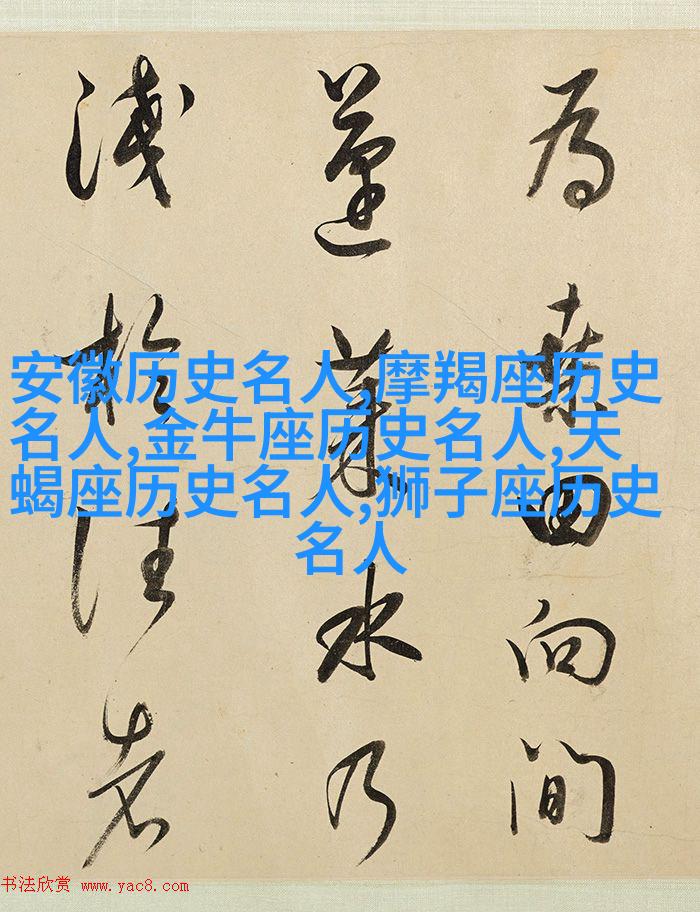 為桑田向間
蓬萊水乃
淺於往者
安徽历史名人,摩羯座历史
名人,金牛座历史名人,天
蝎座历史名人,狮子座历史
名人
书法欣赏 www.yac8.com